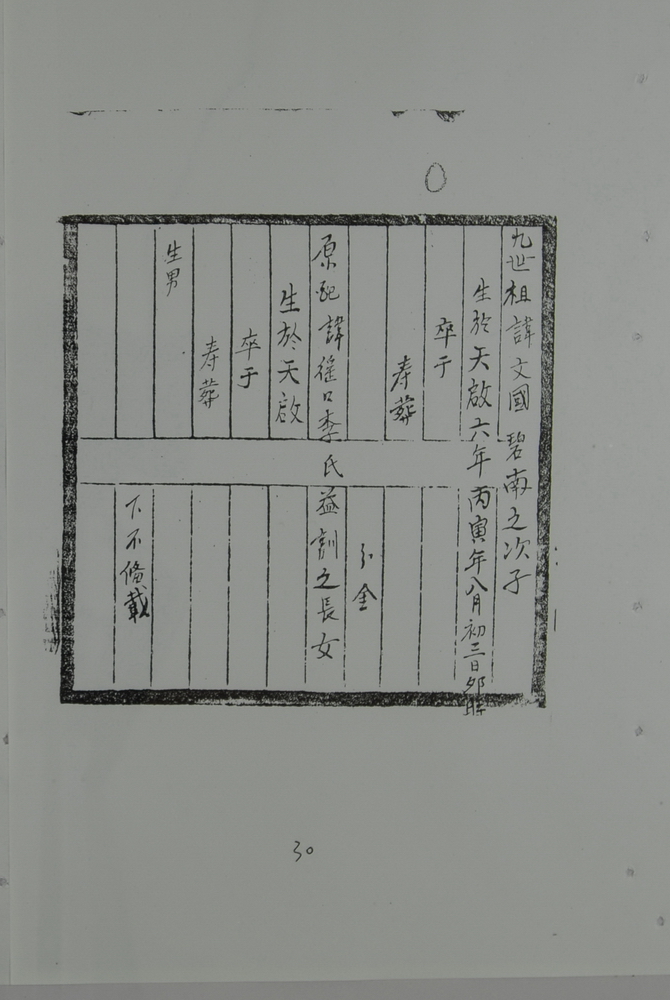 九世祖諱文國 碧南之次子
生於天啟六年丙寅年八月初三日卯時
卒于
寿葬
分金
原配諱徑口李氏益訓之長女
生於天啟
卒于
寿葬
生男
下不俻載
30